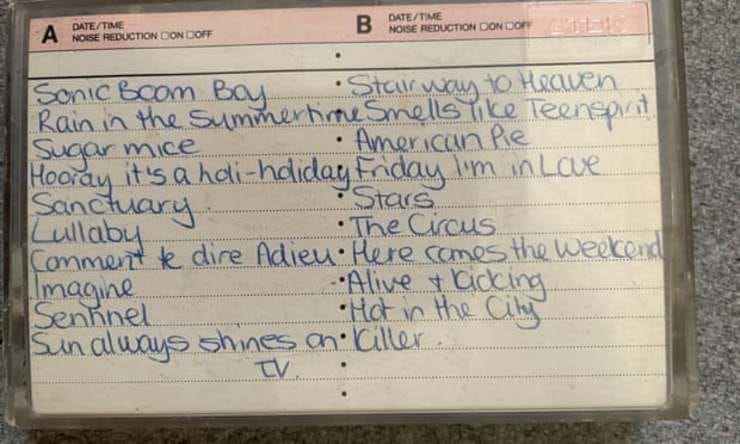 A DATE/TIME NOISE REDUCTION □ON □OFF
B DATE/TIME NOISE REDUCTION □ON □OFF
Sonic Boom Boy
Rain in the Summertime
Sugar mice
Hooray it's a holi-holiday
Sanctuary
Lullaby
Comment te dire Adieu
Imagine
Sentinel
Sun always shines on
TV.
• Stairway to Heaven
Smells like Teenspirit
• American Pie
Friday I'm in Love
• Stars
• The Circus
• Here comes the Weekend
• Alive + Kicking
• Hot in the City
• Killer.